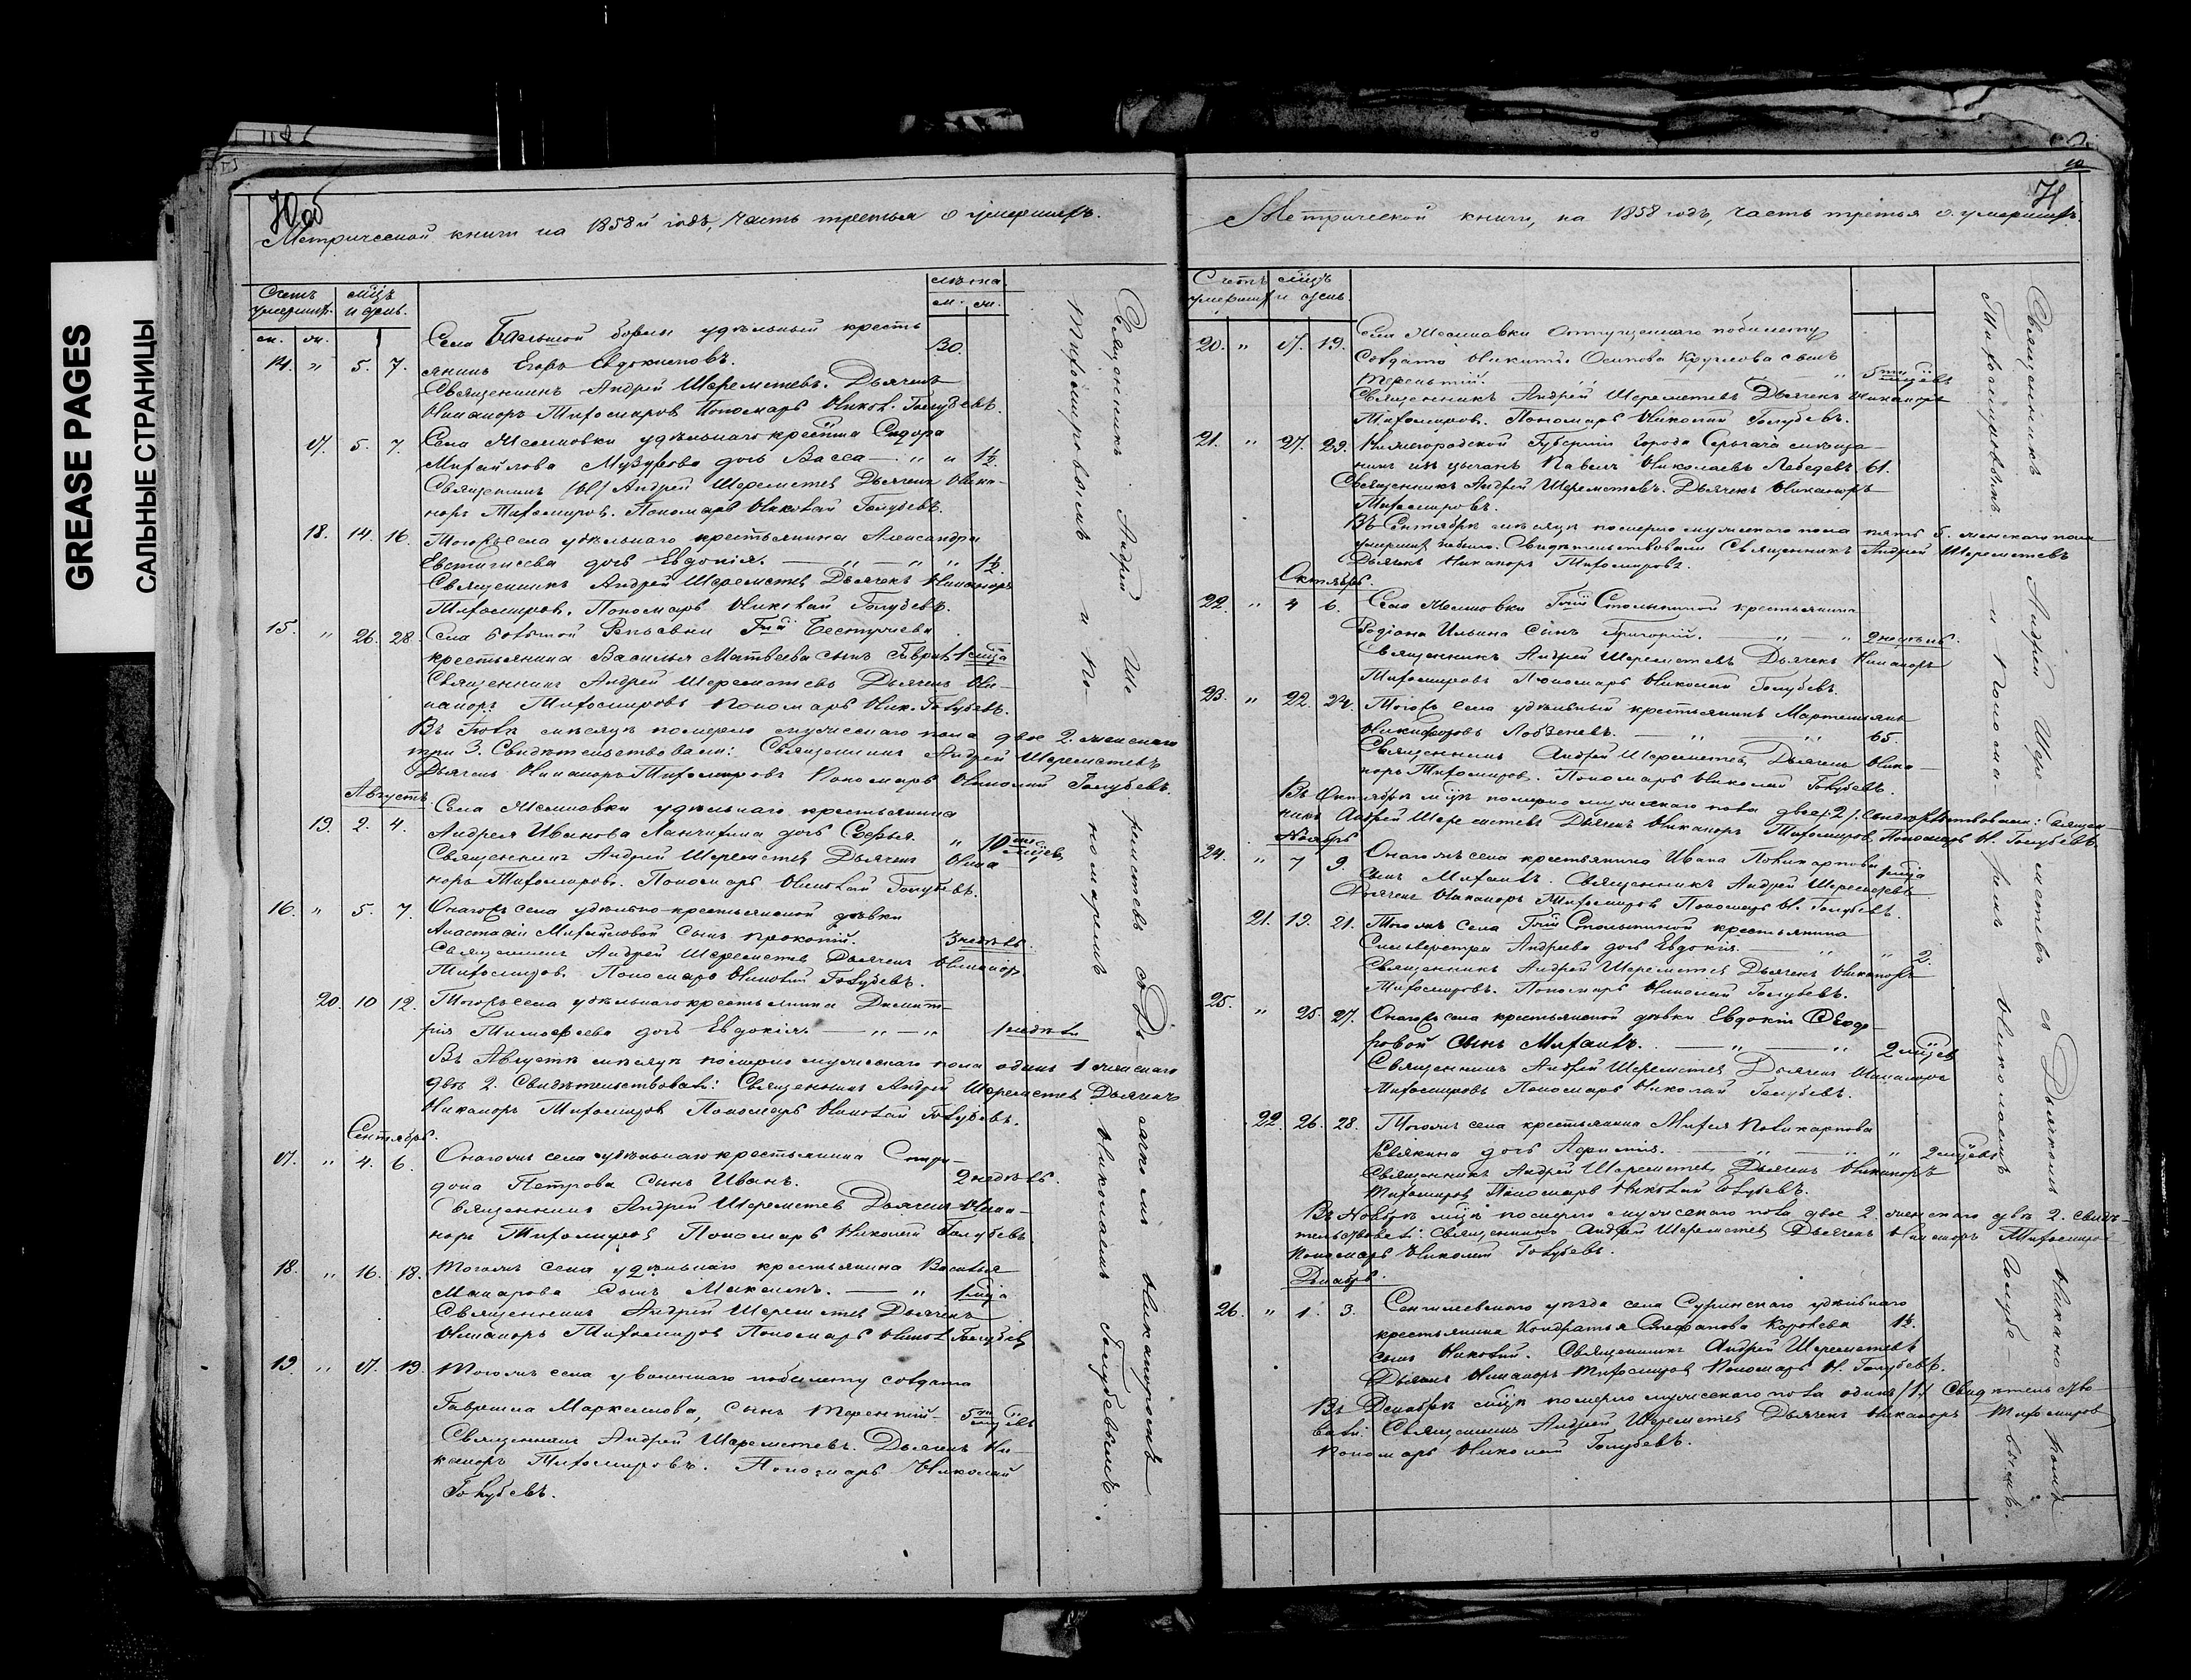 GREASE PAGES
САЛЬНЫЕ СТРАНИЦЫ
70 об
Метрической книги на 1858й годъ, часть третья о умершихъ.
Счетъ умершихъ.
мцъ и день.
лѣта.
м. ж.
Села Большой борлы удѣльный кресть
14. " 5. 7. янинъ Егоръ Евдокимовъ. 30.
Священникъ Андрей Шереметевъ. Дьячекъ
Никаноръ Тихомировъ Пономарь Никол. Голубевъ.
17. 5. 7. Села удѣльнаго крестьянина Сидора
Михайлова дочь Васса — " " 1½
Священникъ Андрей Шереметев Дьячекъ Ника-
норъ Тихомиров. Пономарь Николай Голубевъ.
18. 14. 16. Тогожъ села удѣльнаго крестьянина Александра
Евстигнеева дочь Евдокія. — " — " " 1½.
Священникъ Андрей Шереметев Дьячекъ Никаноръ
Тихомиров. Пономарь Николай Голубевъ.
15. " 26. 28. Села Большой Репьевки Гжи Бестужева
крестьянина Василья Матвеева сынъ Гаврил. 1 мца
Священникъ Андрей Шереметевъ Дьячекъ Ни-
каноръ Тихомировъ Пономарь Ник. Голубевъ.
Въ Іюлѣ мѣсяцѣ померло мужескаго пола двое 2. женскаго
три 3. Свидѣтельствовали: Священникъ Андрей Шереметевъ
Дьячекъ Никаноръ Тихомировъ Пономарь Николай Голубевъ.
Августъ
Села удѣльнаго крестьянина
19. 2. 4. Андрея Иванова дочь Софья. " 10ти мцевъ
Священникъ Андрей Шереметев Дьячекъ Ника
норъ Тихомиров. Пономарь Николай Голубевъ.
16. " 5. 7. Онагожъ села удѣльно-крестьянской дѣвки
Анастасіи Михайловой сынъ Прокопій. 3 недѣль.
Священникъ Андрей Шереметев Дьячекъ Никанор.
Тихомиров. Пономарь Николай Голубевъ.
20. 10 12. Тогожъ села удѣльнаго крестьянина Димит-
рія Тимофеева дочь Евдокія. — " — " 1 недѣли
Въ Августѣ мѣсяцѣ померло мужескаго пола одинъ 1 женскаго
двѣ 2. Свидѣтельствовали: Священникъ Андрей Шереметев Дьячекъ
Никаноръ Тихомиров Пономарь Николай Голубевъ.
Сентябрь.
17. " 4. 6. Онагожъ села удѣльнаго крестьянина Спири-
дона Петрова сынъ Иванъ. 2 недѣль.
Священникъ Андрей Шереметев Дьячекъ Ника-
норъ Тихомиров Пономарь Николай Голубевъ
18. " 16. 18. Тогожъ села удѣльнаго крестьянина Василья
Макарова сынъ Максимъ. — " 1 мца
Священникъ Андрей Шереметев Дьячекъ
Никаноръ Тихомиров Пономарь Никол. Голубев
19 " 17. 19. Тогожъ села уволеннаго побилету солдата
Гавриила Маркелова, сынъ Терентій — 5ти мцевъ
Священникъ Андрей Шереметевъ. Дьячекъ Ни-
каноръ Тихомировъ. Пономарь Николай
Голубевъ.
Священникъ Андрей Шереметевъ съ Дьячкомъ Никаноромъ
Тихомировымъ и Пономаремъ Николаемъ Голубевымъ.
71
Метрической книги, на 1858 годъ, часть третья о умершихъ.
Счетъ умерших
мцъ и день.
20. " 17. 19. Села отпущеннаго побилету
Солдата Никиты Осипова Круглова сынъ
Терентій. " " 5ти мцевъ
Священникъ Андрей Шереметевъ Дьячекъ Никаноръ
Тихомиров. Пономарь Николай Голубевъ.
21. " 27. 29. Нижегородской Губерніи города Сергача мѣща-
нинъ изъ цыганъ Павелъ Николаевъ Лебедевъ 61.
Священникъ Андрей Шереметевъ. Дьячекъ Никаноръ
Тихомировъ.
Въ Сентябрѣ мѣсяцѣ померло мужескаго пола пять 5. женскаго пола
умерших небыло. Свидѣтельствовали Священникъ Андрей Шереметевъ
Дьячекъ Никаноръ Тихомировъ.
Октябрь.
22. " 4 6. Села Гжи Столыпиной крестьянина
Родіона Ильина сынъ Григорій. — " — " 2 недѣль.
Священникъ Андрей Шереметевъ Дьячекъ Никаноръ
Тихомировъ Пономарь Николай Голубевъ.
23. " 22. 24. Тогожъ села удѣльный крестьянинъ Мартемьянъ
Никифоровъ — " — " 65.
Священникъ Андрей Шереметев Дьячекъ Ника-
норъ Тихомиров. Пономарь Николай Голубевъ.
Въ Октябрѣ мцѣ померло мужескаго пола двое /2/. Свидѣтельствовали: Священ-
никъ Андрей Шереметевъ Дьячекъ Никаноръ Тихомиров Пономарь Н. Голубевъ.
Ноябрь
24. " 7 9. Онагожъ села крестьянина Ивана Поликарпова 1 мца
сынъ Михаилъ. Священникъ Андрей Шереметевъ
Дьячекъ Никаноръ Тихомиров Пономарь Н. Голубевъ.
21. 19. 21. Тогожъ села Гжи Столыпиной крестьянина
Сильверстра Андреева дочь Евдокія. " " 2.
Священникъ Андрей Шереметев Дьячекъ Никаноръ
Тихомировъ. Пономарь Николай Голубевъ.
25. " 25. 27. Онагожъ села крестьянской дѣвки Евдокіи Ѳедо-
ровой сынъ Михаилъ. — " — " 2 мцев
Священникъ Андрей Шереметев Дьячекъ Никаноръ
Тихомировъ Пономарь Николай Голубевъ.
22. 26. 28. Тогожъ села крестьянина Михея Поликарпова
дочь — " — " " 2 мцевъ
Священникъ Андрей Шереметев Дьячекъ Никаноръ
Тихомиров Пономарь Николай Голубевъ.
Въ Ноябрѣ мцѣ померло мужескаго пола двое 2. женскаго двѣ 2. Свидѣ-
тельствовали: Священникъ Андрей Шереметев Дьячекъ Никаноръ Тихомиров
Пономарь Николай Голубевъ.
Декабрь.
26. " 1. 3. Сенгилеевскаго уѣзда села Суринскаго удѣльнаго
крестьянина Кондратья Стефанова Королева 1½.
сынъ Николай. Священникъ Андрей Шереметевъ
Дьячекъ Никаноръ Тихомиров Пономарь Н. Голубевъ.
Въ Декабрѣ мцѣ померло мужескаго пола одинъ /1/. Свидѣтельство-
вали: Священникъ Андрей Шереметев Дьячекъ Никаноръ Тихомиров
Пономарь Николай Голубевъ.
Священникъ Андрей Шереметевъ съ Дьячкомъ Никаноромъ
Тихомировымъ и Пономаремъ Николаемъ Голубевымъ.